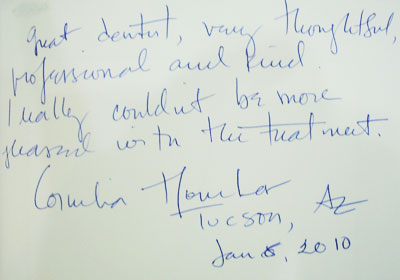 great dentist, very thoughtful,
professional and kind.
I really couldn't be more
pleased with the treatment.
Cornelia
Tucson, AZ
Jan 6, 2010